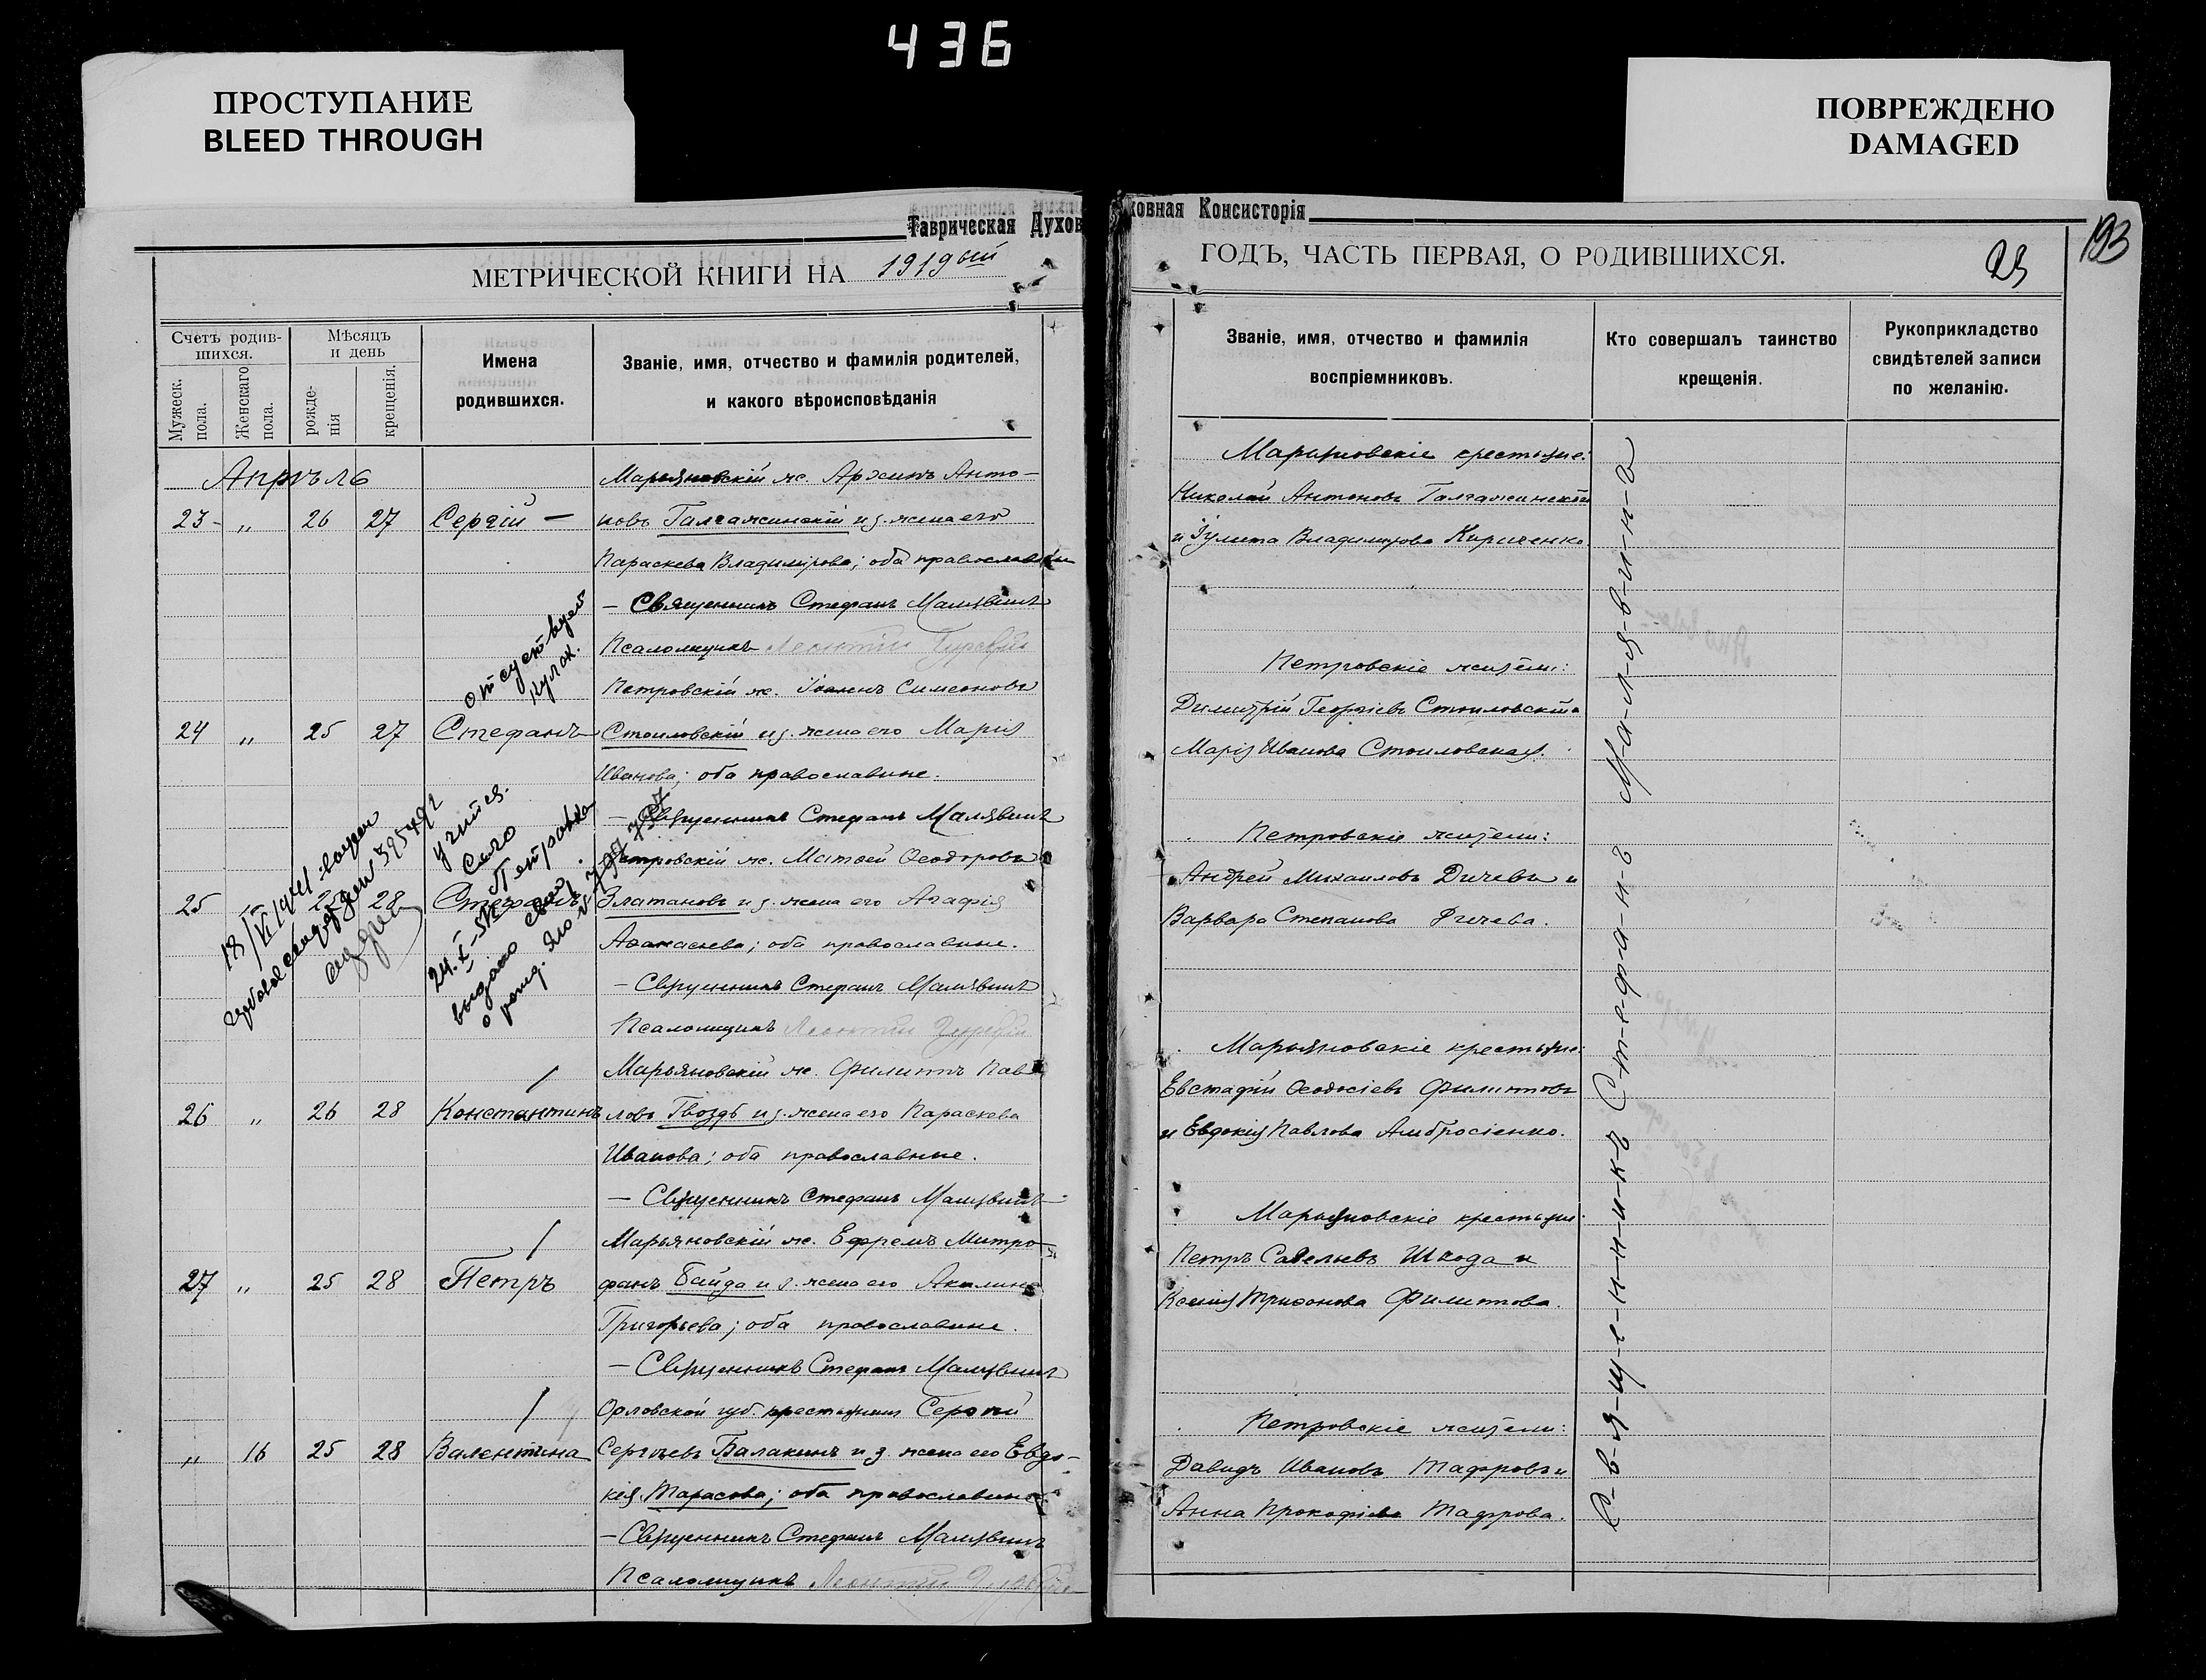 436
ПРОСТУПАНИЕ
BLEED THROUGH
ПОВРЕЖДЕНО
DAMAGED
Таврическая Духовная Консисторія
МЕТРИЧЕСКОЙ КНИГИ НА 1919ый
Счетъ родив-
шихся.
Мужеск. пола.
Женскаго пола.
Мѣсяцъ
и день
рожде-
нія
крещенія.
Имена
родившихся.
Званіе, имя, отчество и фамилія родителей,
и какого вѣроисповѣданія
Апрѣль
Марьяновскій ж. Архипъ Анто-
23 - „ 26 27 Сергій - новъ Галгажинскій и з. жена его
Параскева Владимірова; оба православные
- Священникъ Стефанъ Малявинъ
Псаломщикъ Леонтій
отсуствует
кулак.
Петровскій ж. Іоаннъ Симеоновъ
24 „ 25 27 Стефанъ Стоиловскій и з. жена его Марія
Иванова; оба православные.
- Священникъ Стефанъ Малявинъ
учится.
Село
Петровка
Петровскій ж. Матвей Ѳеодоровъ
25 „ 25 28 Стефанъ Златановъ и з. жена его Агафія
Аѳанасіева; оба православные.
18/VI 1941
24.X-51г
выдано свид.
о рожд.
- Священникъ Стефанъ Малявинъ
Псаломщикъ Леонтій
Марьяновскій ж. Филиппъ Пав-
26 „ 26 28 Константинъ ловъ Гвоздь и з. жена его Параскева
Иванова; оба православные.
- Священникъ Стефанъ Малявинъ
Марьяновскій ж. Ефремъ Митро-
27 „ 25 28 Петръ фанъ Байда и з. жена его Акилина
Григорьева; оба православные.
- Священникъ Стефанъ Малявинъ
Орловской губ. крестьянинъ Сергѣй
„ 16 25 28 Валентина Сергѣевъ Балакинъ и з. жена его Евдо-
кія Тарасова; оба православные.
- Священникъ Стефанъ Малявинъ
Псаломщикъ Леонтій
ГОДЪ, ЧАСТЬ ПЕРВАЯ, О РОДИВШИХСЯ.
193
Званіе, имя, отчество и фамилія
воспріемниковъ.
Кто совершалъ таинство
крещенія.
Рукоприкладство
свидѣтелей записи
по желанію.
Марьяновскіе крестьяне:
Николай Антоновъ Галгажинскій
и Іулита Владимірова Кириченко.
Петровскіе жители:
Димитрій Георгіевъ Стоиловскій и
Марія Иванова Стоиловская.
Петровскіе жители:
Андрей Михаиловъ Дичевъ и
Варвара Степанова Дичева.
Марьяновскіе крестьяне:
Евстафій Ѳеодосіевъ Филиповъ
и Евдокія Павлова Амбросіенко.
Марьяновскіе крестьяне:
Петръ Савельевъ Шкода и
Ксенія Трифонова Филиппова.
Петровскіе жители:
Давидъ Ивановъ Тафровъ и
Анна Прокофіева Тафрова.
С-в-я-щ-е-н-н-и-к-ъ С-т-е-ф-а-н-ъ М-а-л-я-в-и-н-ъ